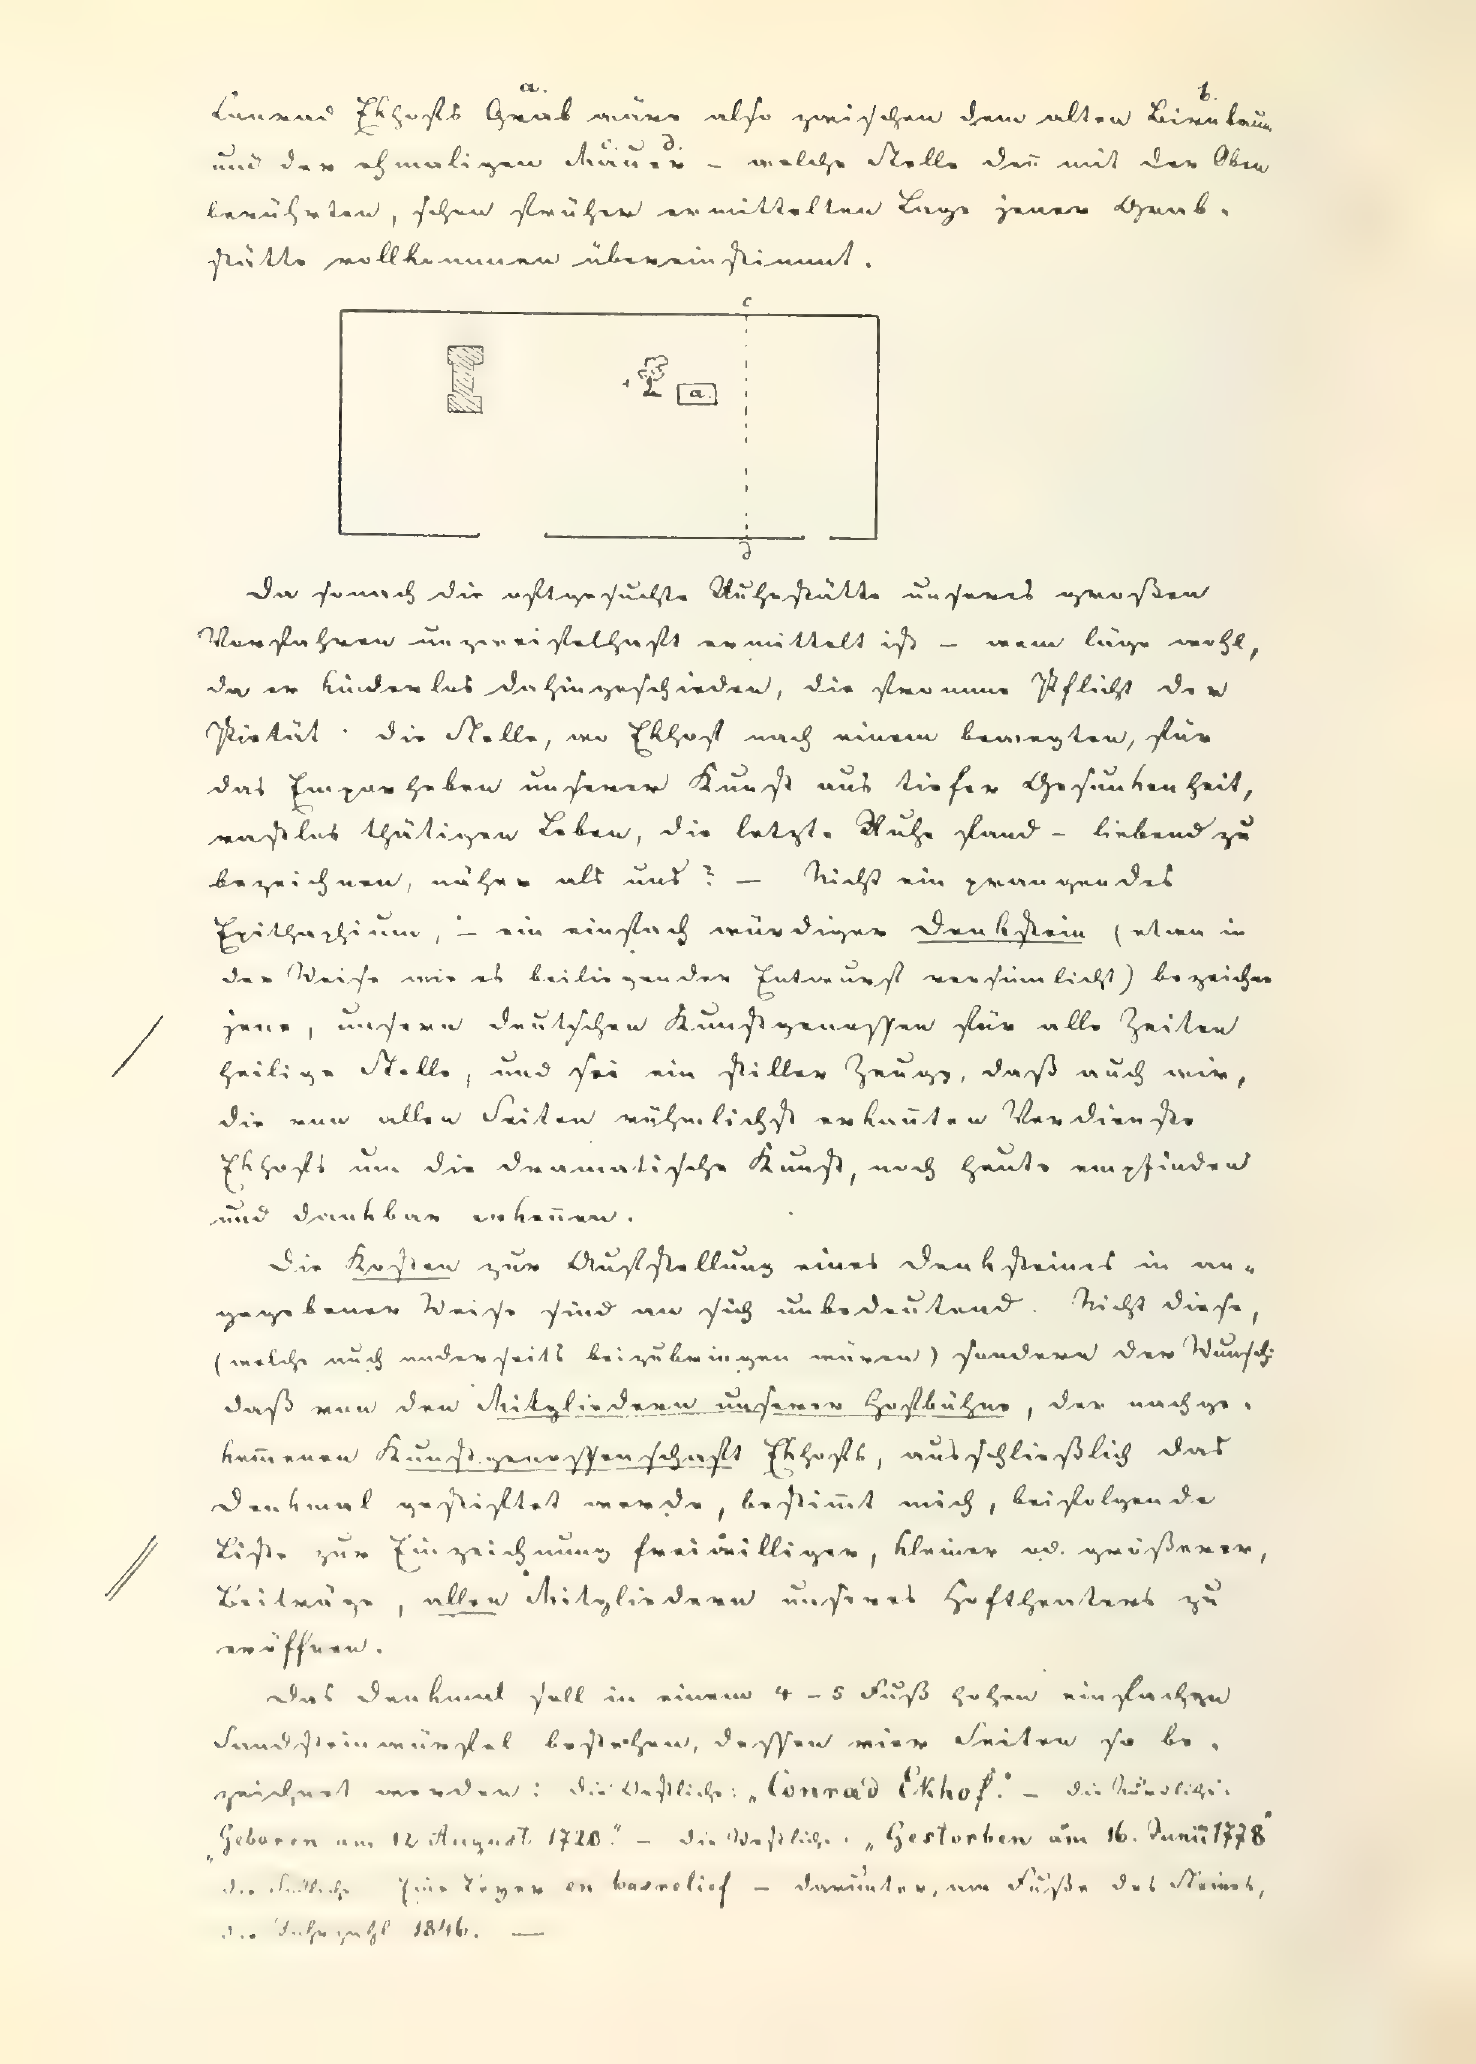 a. b.
Conrad Ekhofs Grab wäre also zwischen dem alten Birnbaum
c. d.
und der ehmaligen Mauer – welche Stelle deñ mit der Oben
berührten, schon früher ermittelten Lage jener Grab-
stätte vollkommen übereinstimmt.
c
a.
d
Da sonach die oftgesuchte Ruhestätte unseres großen
Vorfahren unzweifelhaft ermittelt ist – wem läge wohl,
da er kinderlos dahingeschieden, die fromme Pflicht der
Pietät · die Stelle, wo Ekhof nach einem bewegten, für
das Emporheben unserer Kunst aus tiefer Gesunkenheit,
rastlos thätigen Leben, die letzte Ruhe fand – liebend zu
bezeichnen, näher als uns? – Nicht ein prangendes
Epitaphium, – ein einfach würdiger Denkstein (etwa in
der Weise wie es beiliegender Entwurf versinnlicht) bezeichne
jene, unsern deutschen Kunstgenossen für alle Zeiten
heilige Stelle, und sei ein stiller Zeuge, daß auch wir,
die von allen Seiten rühmlichst erkañten Verdienste
Ekhofs um die dramatische Kunst, noch heute empfinden
und dankbar erkeñen.
Die Kosten zur Aufstellung eines Denksteines in an-
gegebener Weise sind an sich unbedeutend. Nicht diese,
(welche auch anderseits beizubringen wären) sondern der Wunsch:
daß von den Mitgliedern unserer Hofbühne, der nachge-
kom̄enen Kunstgenossenschaft Ekhofs, ausschließlich das
Denkmal gestiftet werde, bestim̄t mich, beifolgende
Liste zur Einzeichnung freiwilliger, kleiner od. größerer,
Beiträge, allen Mitgliedern unseres Hoftheaters zu
eröffnen.
Das Denkmal soll in einem 4 – 5 Fuß hohen einfachen
Sandsteinwürfel bestehen, dessen vier Seiten so be-
zeichnet werden: die Oestliche: „Conrad Ekhof." – die Nördliche:
„Geboren am 12 August 1720." – die Westliche: „Gestorben am 16. Junii 1778"
die Südliche Eine Leyer en basrelief – darunter, am Fuße des Steines,
die Jahrzahl 1846. —